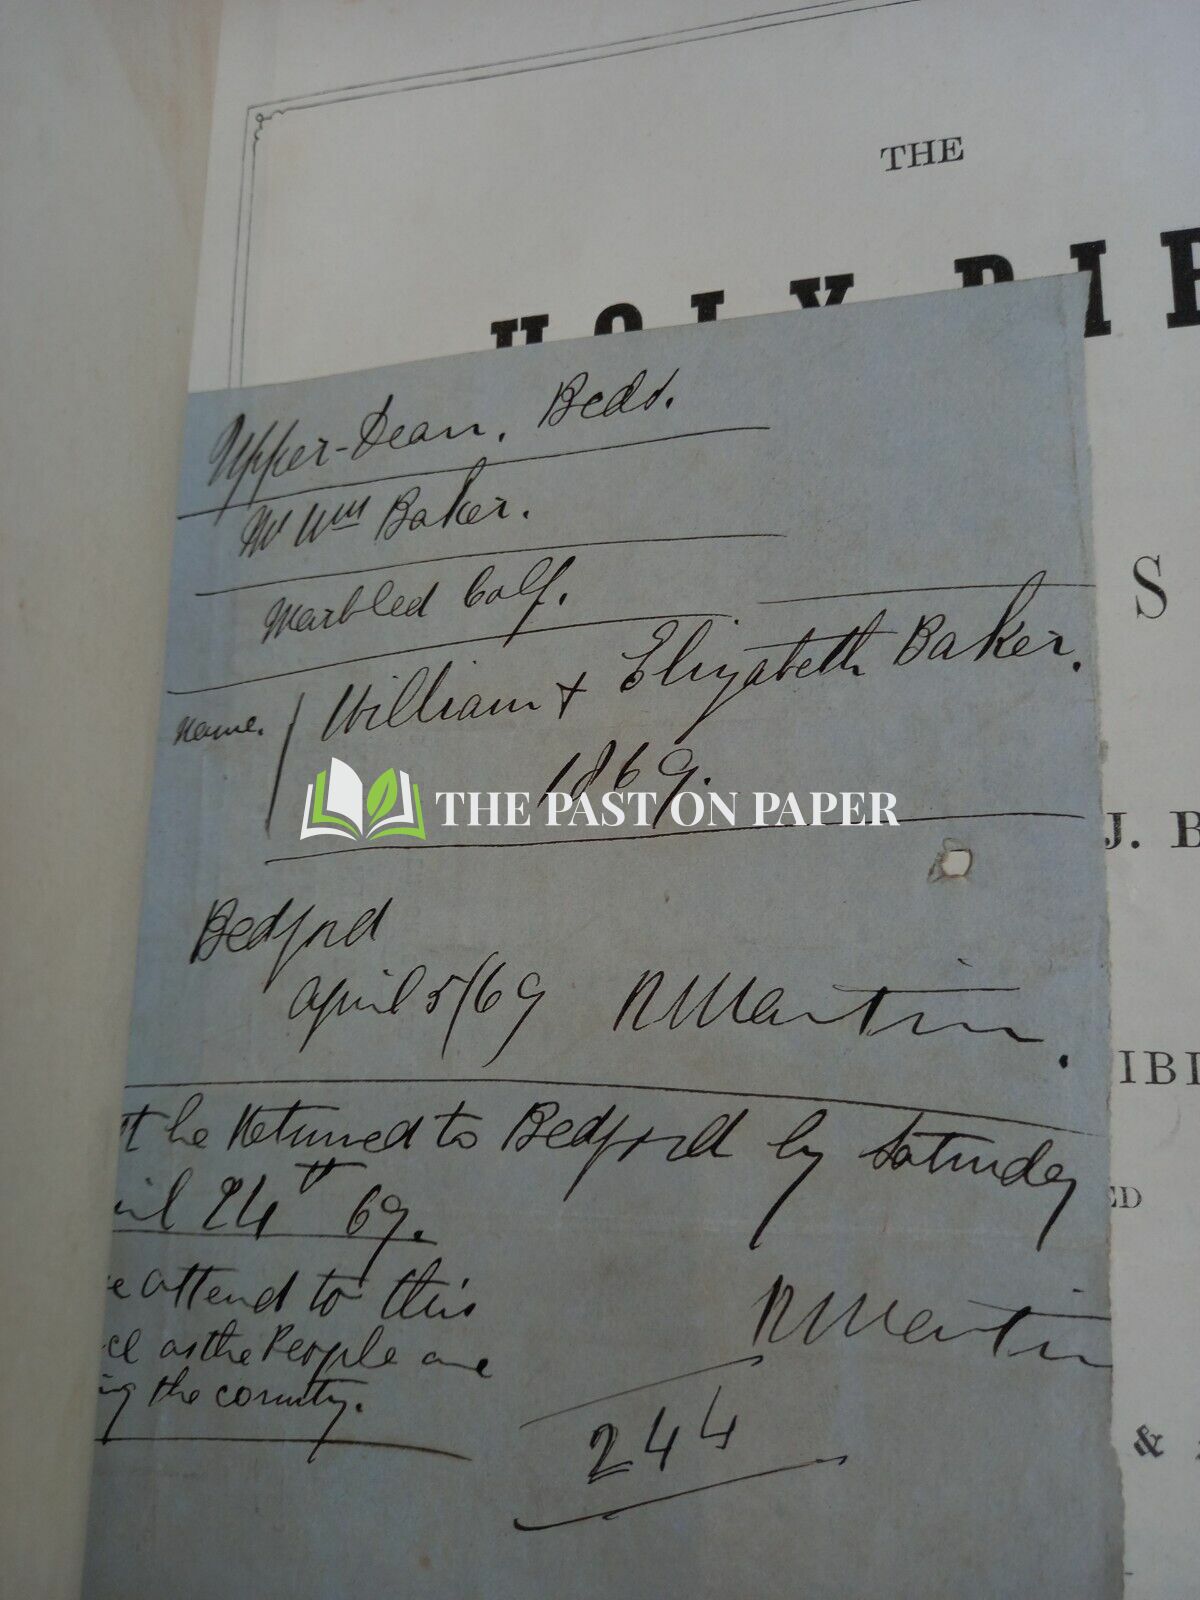 THE
HOLY BIB
S
J. B
IBI
ED
&
Upper-Dean, Beds.
Mr Wm Baker.
Marbled Calf.
Name. William + Elizabeth Baker.
1869.
THE PAST ON PAPER
Bedford
April 5/69 R Martin.
t be Returned to Bedford by Saturday
il 24th 69.
e attend to this
ce as the People are
ng the country.
R Martin
244